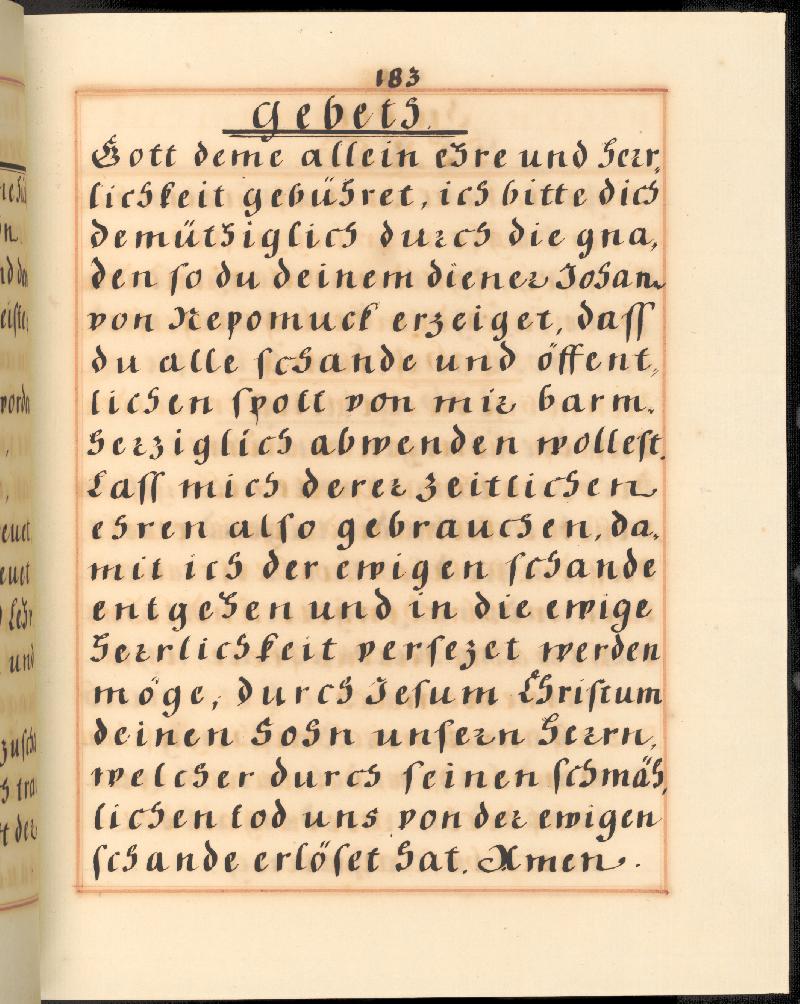 183
Gebets.
Gott deme allein ehre und herr,
lichkeit gebühret, ich bitte dich
demüthiglich durch die gna,
den so du deinem diener Johan.
von Nepomuck erzeiget, dass
du alle schande und öffent,
lichen spott von mir barm,
herziglich abwenden wollest.
Lass mich derer zeitlichen
ehren also gebrauchen, da,
mit ich der ewigen schande
entgehen und in die ewige
herrlichkeit versezet werden
möge, durch Jesum Christum
deinen Sohn unsern herrn,
welcher durch seinen schmäh,
lichen tod uns von der ewigen
schande erlöset hat. Amen.